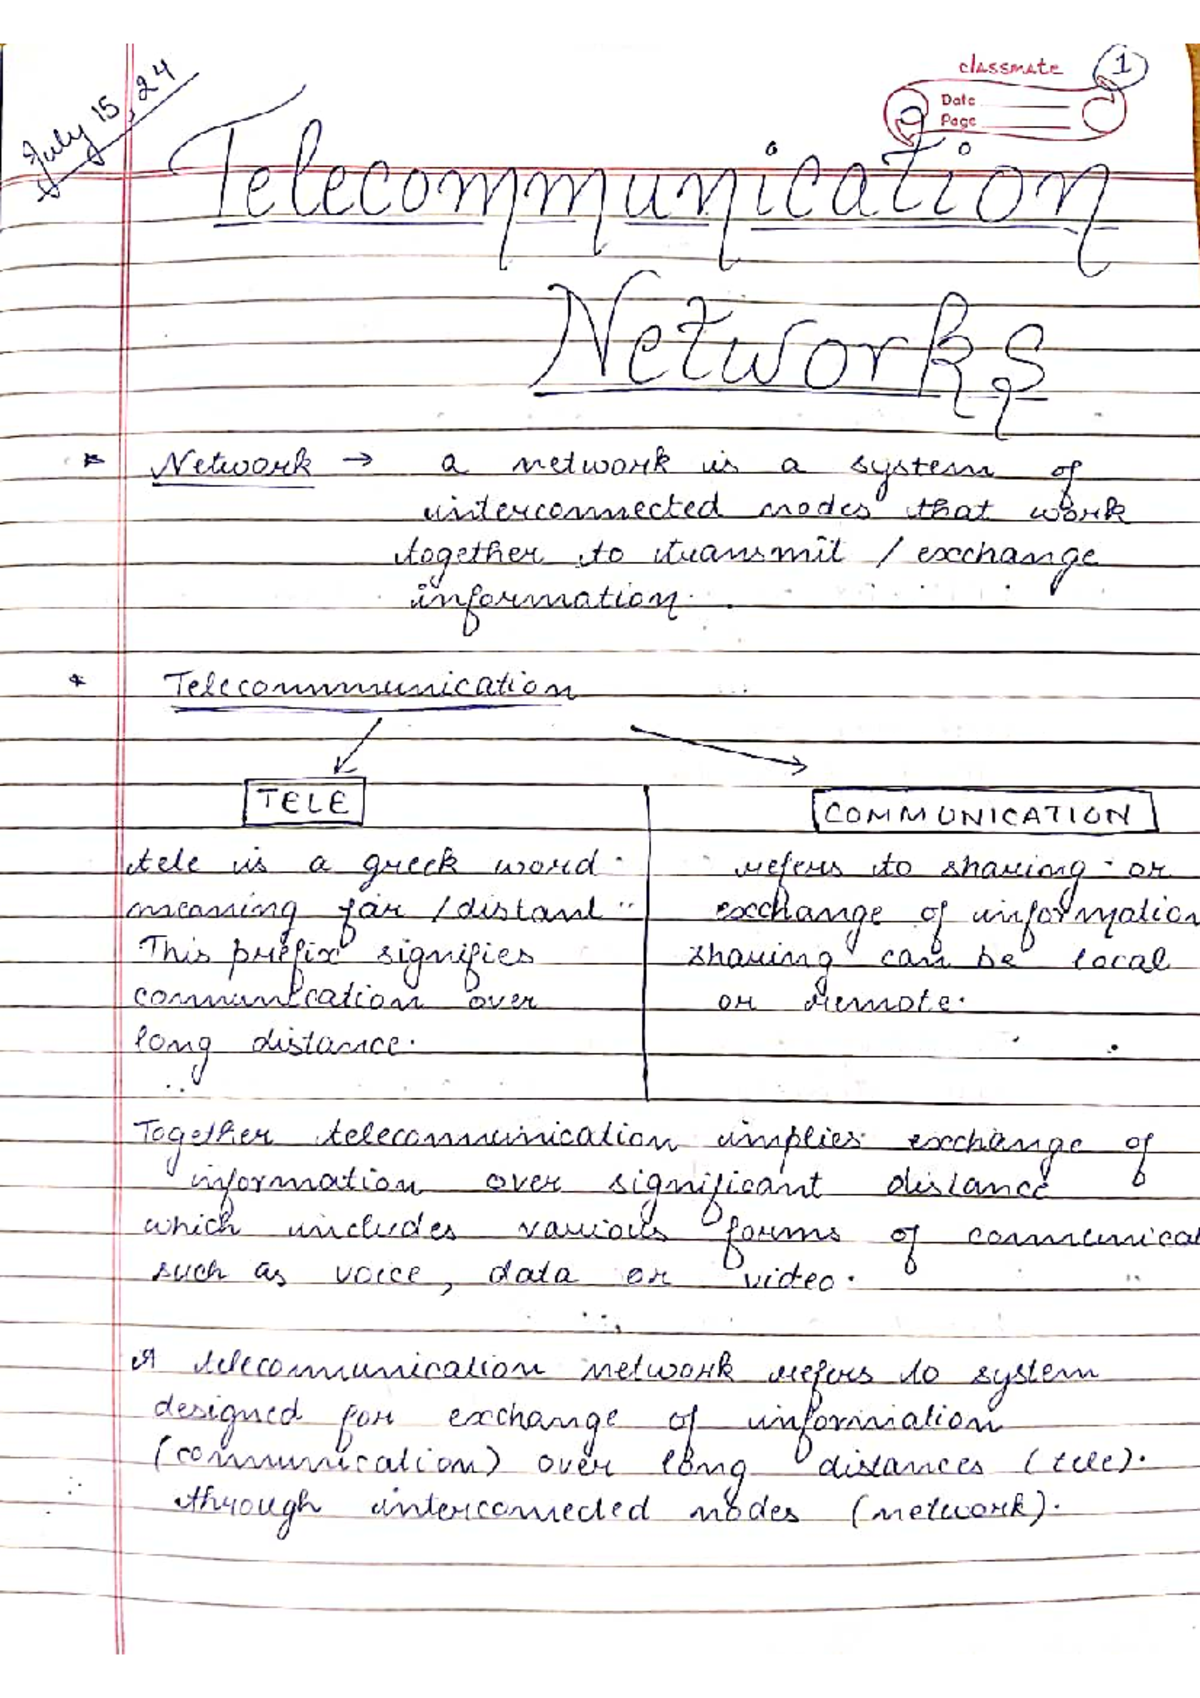 July 15, 24
classmate
1
Date
Page
Telecommunication
Networks
* Network → a network is a system of
interconnected nodes that work
together to transmit / exchange
information.
* Telecommunication
TELE
COMMUNICATION
tele is a greek word
meaning far / distant
This prefix signifies
communication over
long distance.
refers to sharing or
exchange of information
sharing can be local
or remote.
Together telecommunication implies exchange of
information over significant distance
which includes various forms of communicat
such as voice, data or video.
A telecommunication network refers to system
designed for exchange of information
(communication) over long distances (tele).
through interconnected nodes (network).